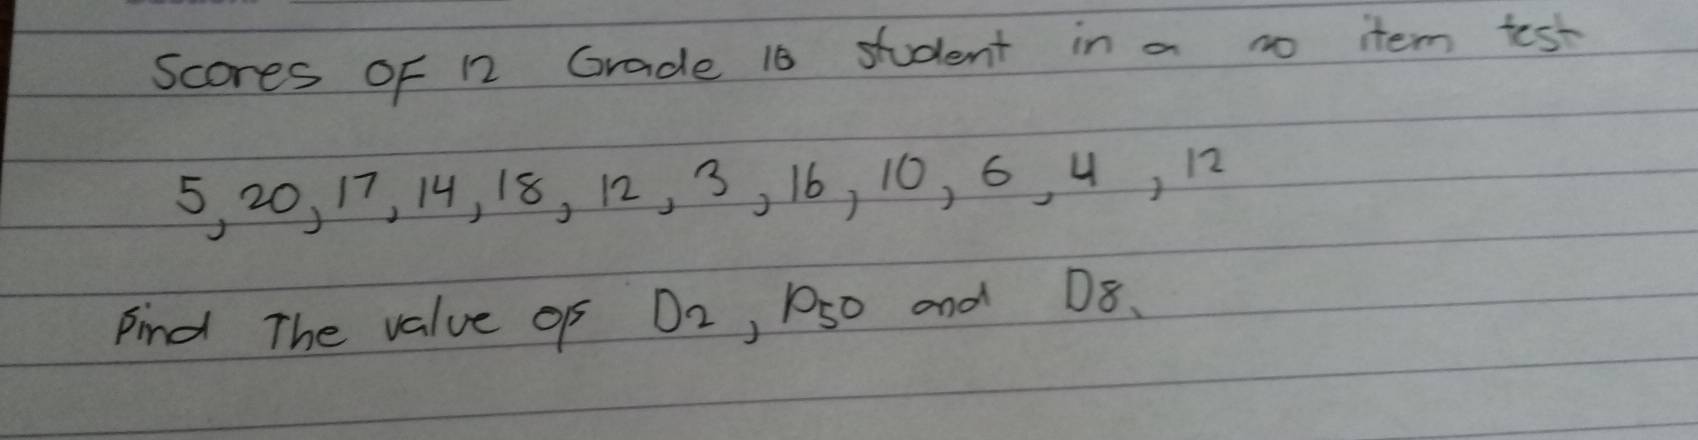 Scores OF 12 Grade 10 student in a 20 item test
5, 20, 17, 14, 18, 12, 3, 16, 10, 6, 4, 12
Find The value of D2, P50 and D8.